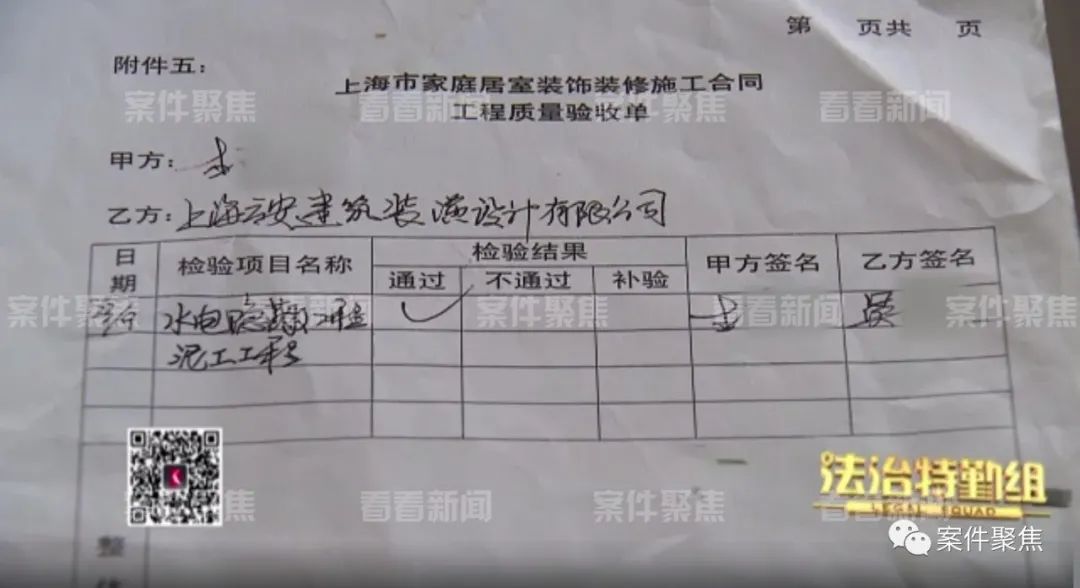 第 页共 页
附件五：
上海市家庭居室装饰装修施工合同
工程质量验收单
甲方：
乙方：上海云安建筑装潢设计有限公司
日期 检验项目名称 检验结果 甲方签名 乙方签名
通过 不通过 补验
水电隐蔽工程 ✓ 吴
泥工工程
整体
案件聚焦 看看新闻 案件聚焦 看看新闻
案件聚焦 看看新闻 案件聚焦 看看新闻 案件聚焦
案件聚焦 看看新闻 案件聚焦 看看新闻
法治特勤组
LEGAL SQUAD
案件聚焦